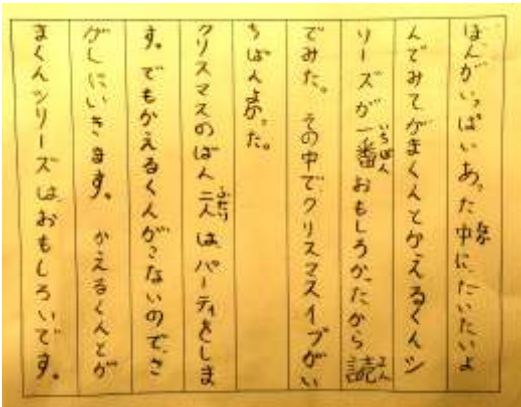 ほんがいっぱいあった中に、だいたいよ
んでみてがまくんとかえるくんシ
リーズが一番おもしろかったから読
でみた。その中でクリスマスイブがい
ちばんよかった。
クリスマスのばん二人はパーティをしま
す。でもかえるくんがこないのでさ
がしにいきます。かえるくんとが
まくんシリーズはおもしろいです。